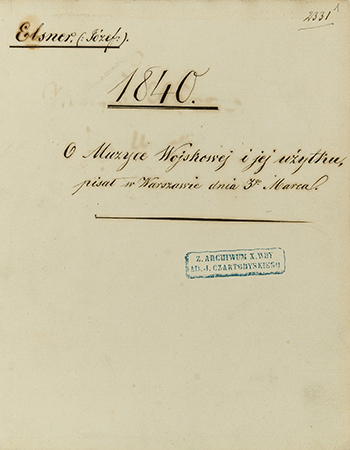 2331
Elsner. (:Józef:).
1840.
O Muzyce Wojskowej i jej użytku,
pisał w Warszawie dnia 3go Marca.
Z. ARCHIWUM X. WDY
AD. J. CZARTORYSKIEGO